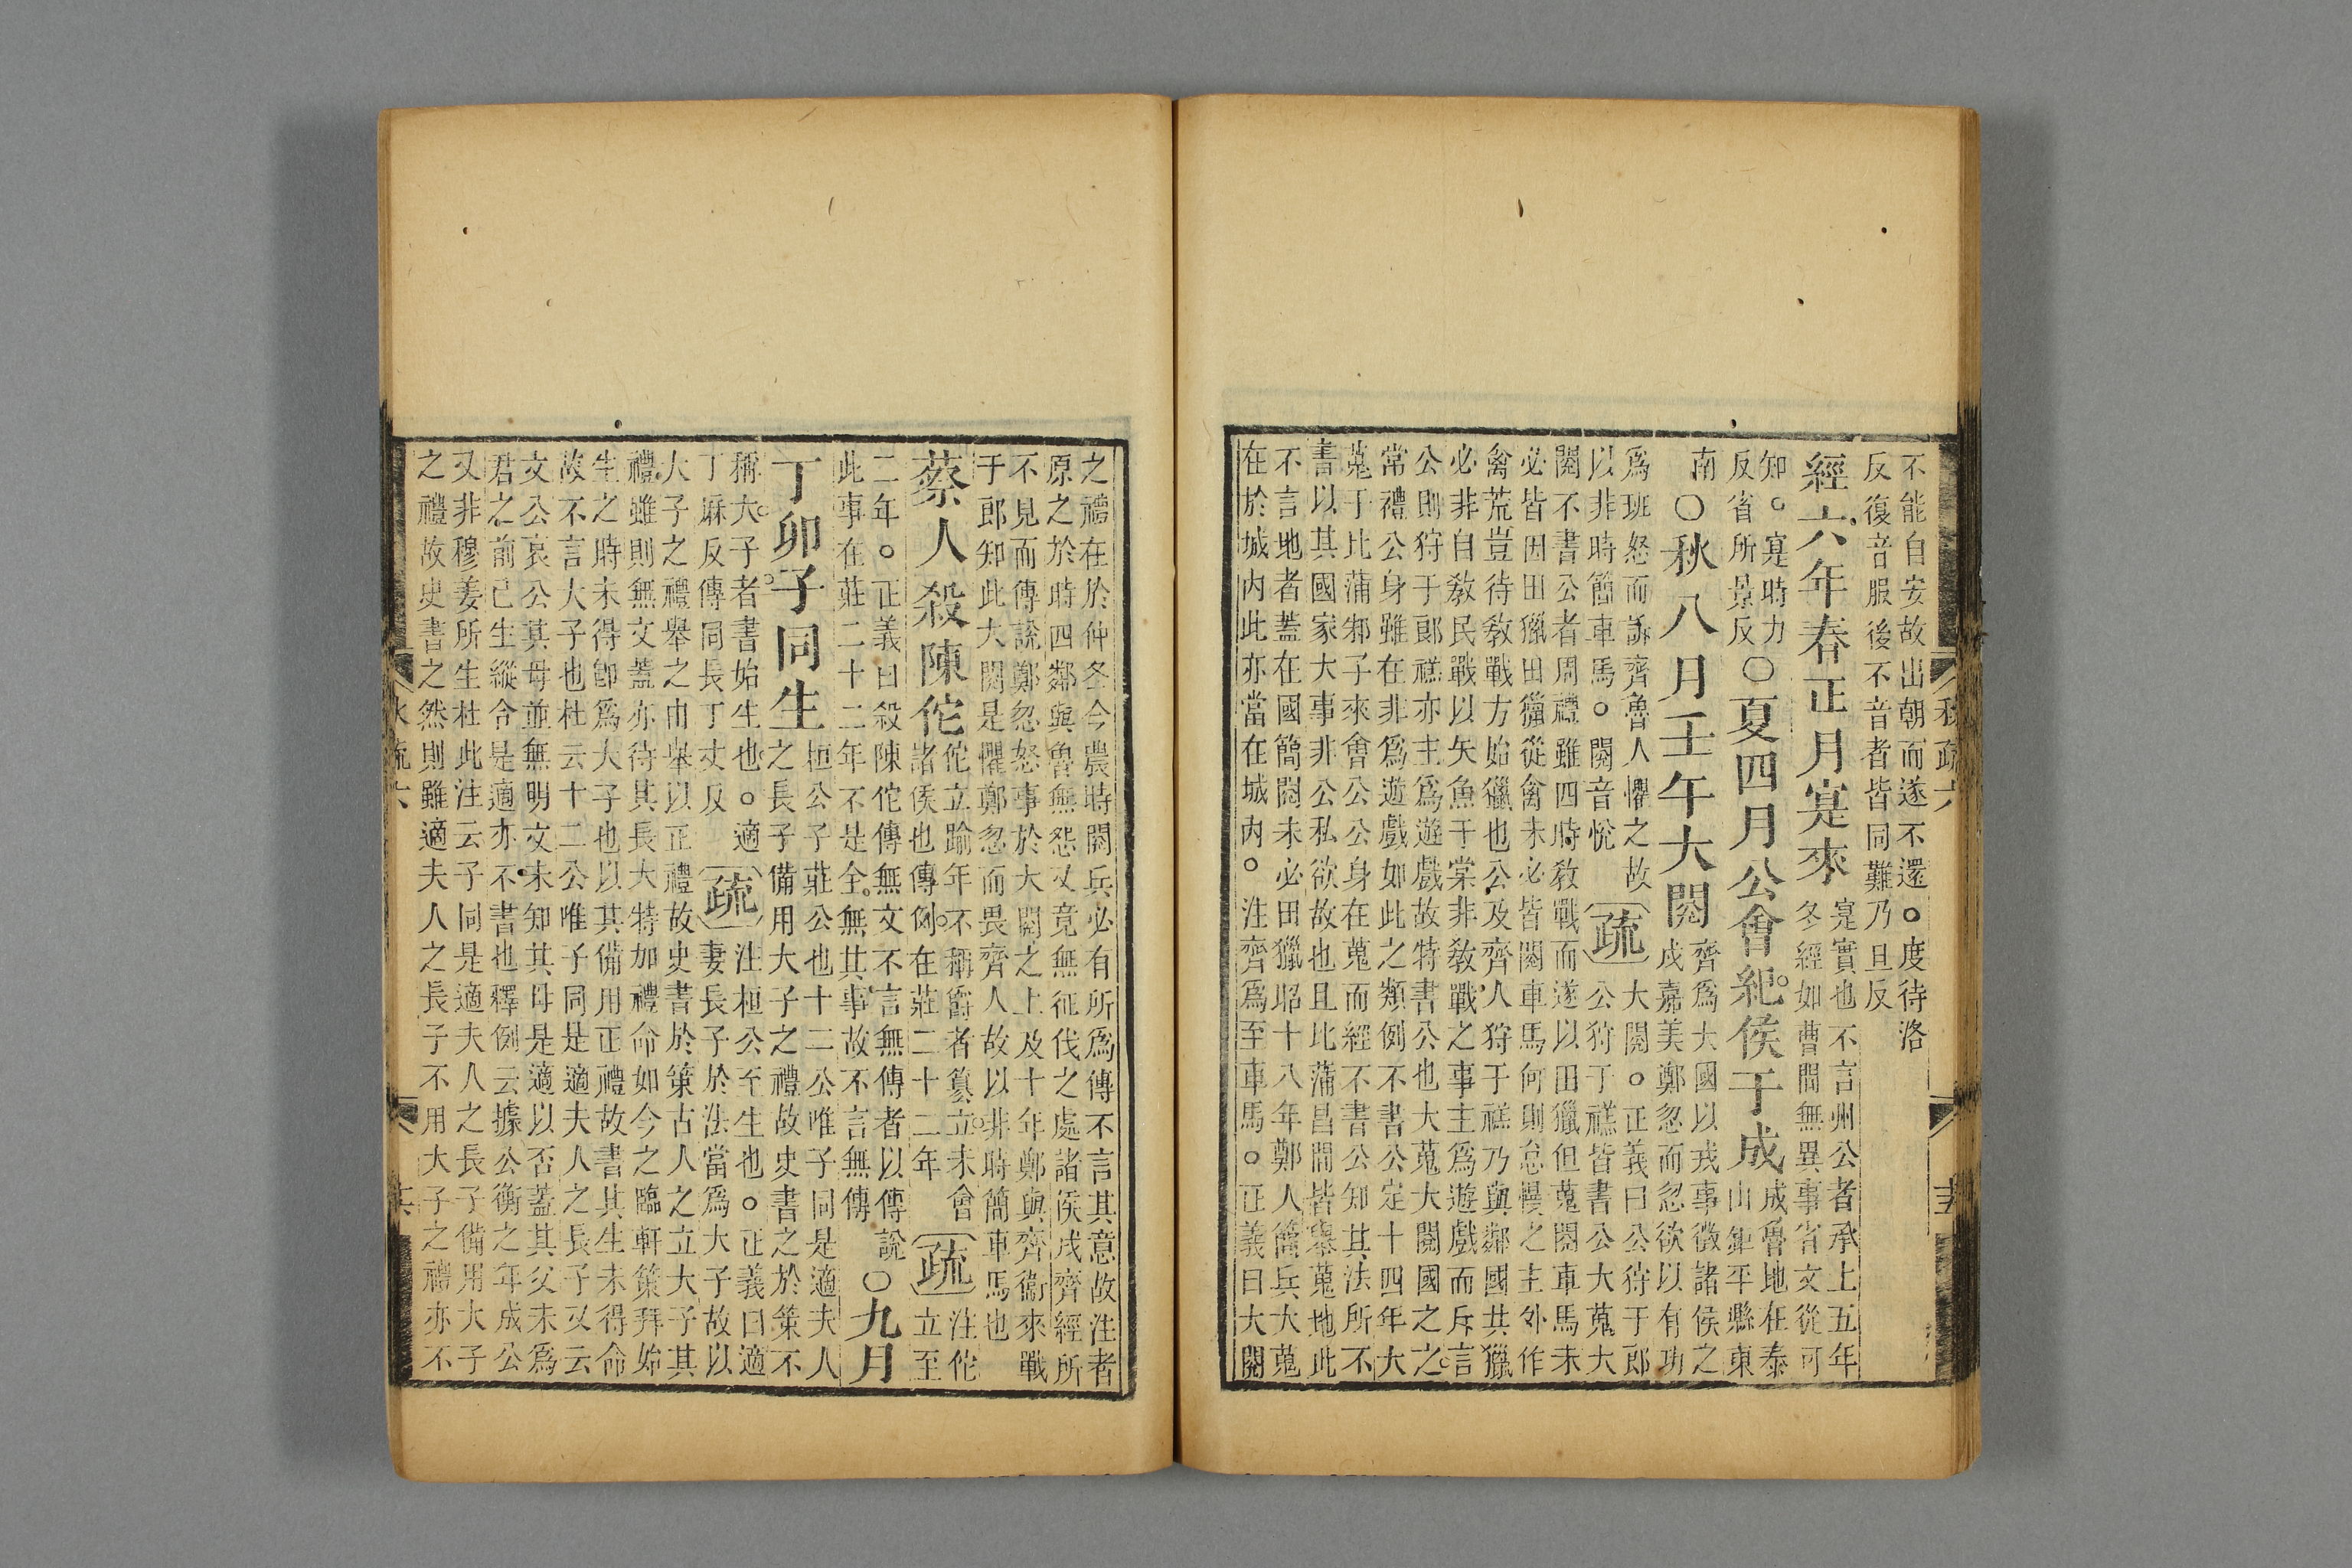 不能自安故出朝而遂不還○度待洛
反復音服後不音者皆同難乃旦反
經六年春正月寔來
寔實也不言州公者承上五年
冬經如曹間無異事省文從可
知○寔時力
反省所景反
○夏四月公會紀侯于成
成魯地在泰
山鉅平縣東
南
○秋八月壬午大閱
齊爲大國以戎事徵諸侯之
戍嘉美鄭忽而忽欲以有功
爲班怒而訴齊魯人懼之故
以非時簡車馬○閱音悅
疏
大閱○正義曰公狩于郎
公狩于禚皆書公大蒐大
閱不書公者周禮雖四時敎戰而遂以田獵但蒐閱車馬未
必皆因田獵田獵從禽未必皆閱車馬何則怠慢之主外作
禽荒豈待敎戰方始獵也公及齊人狩于禚乃與鄰國共獵
必非自敎民戰以矢魚于棠非敎戰之事主爲遊戲而斥言
公則狩于郎禚亦主爲遊戲故特書公也大蒐大閱國之
常禮公身雖在非爲遊戲如此之類例不書公定十四年大
蒐于比蒲邾子來會公公身在蒐而經不書公知其法所不
書以其國家大事非公私欲故也且比蒲昌間皆舉蒐地此
不言地者蓋在國簡閱未必田獵昭十八年鄭人簡兵大蒐
在於城内此亦當在城内○注齊爲至車馬○正義曰大閱
之禮在於仲冬今農時閱兵必有所爲傳不言其意故注者
原之於時四鄰與魯無怨又竟無征伐之處諸侯戍齊經所
不見而傳說鄭忽怒事於大閱之上及十年鄭與齊衞來戰
于郎知此大閱是懼鄭忽而畏齊人故以非時簡車馬也
蔡人殺陳佗
佗立踰年不稱爵者簒立未會
諸侯也傳例在莊二十二年
疏
注佗
立至
二年○正義曰殺陳佗傳無文不言無傳者以傳說
此事在莊二十二年不是全無其事故不言無傳
○九月
丁卯子同生
桓公子莊公也十二公唯子同是適夫人
之長子備用大子之禮故史書之於策不
稱大子者書始生也○適
丁厤反傳同長丁丈反
疏
注桓公至生也○正義曰適
妻長子於法當爲大子故以
大子之禮舉之由舉以正禮故史書於策古人之立大子其
禮雖則無文蓋亦待其長大特加禮命如今之臨軒策拜始
生之時未得卽爲大子也以其備用正禮故書其生未得命
故不言大子也杜云十二公唯子同是適夫人之長子又云
文公哀公其母並無明文未知其母是適以否蓋其父未爲
君之前已生縱令是適亦不書也釋例云據公衡之年成公
又非穆姜所生杜此注云子同是適夫人之長子備用大子
之禮故史書之然則雖適夫人之長子不用大子之禮亦不